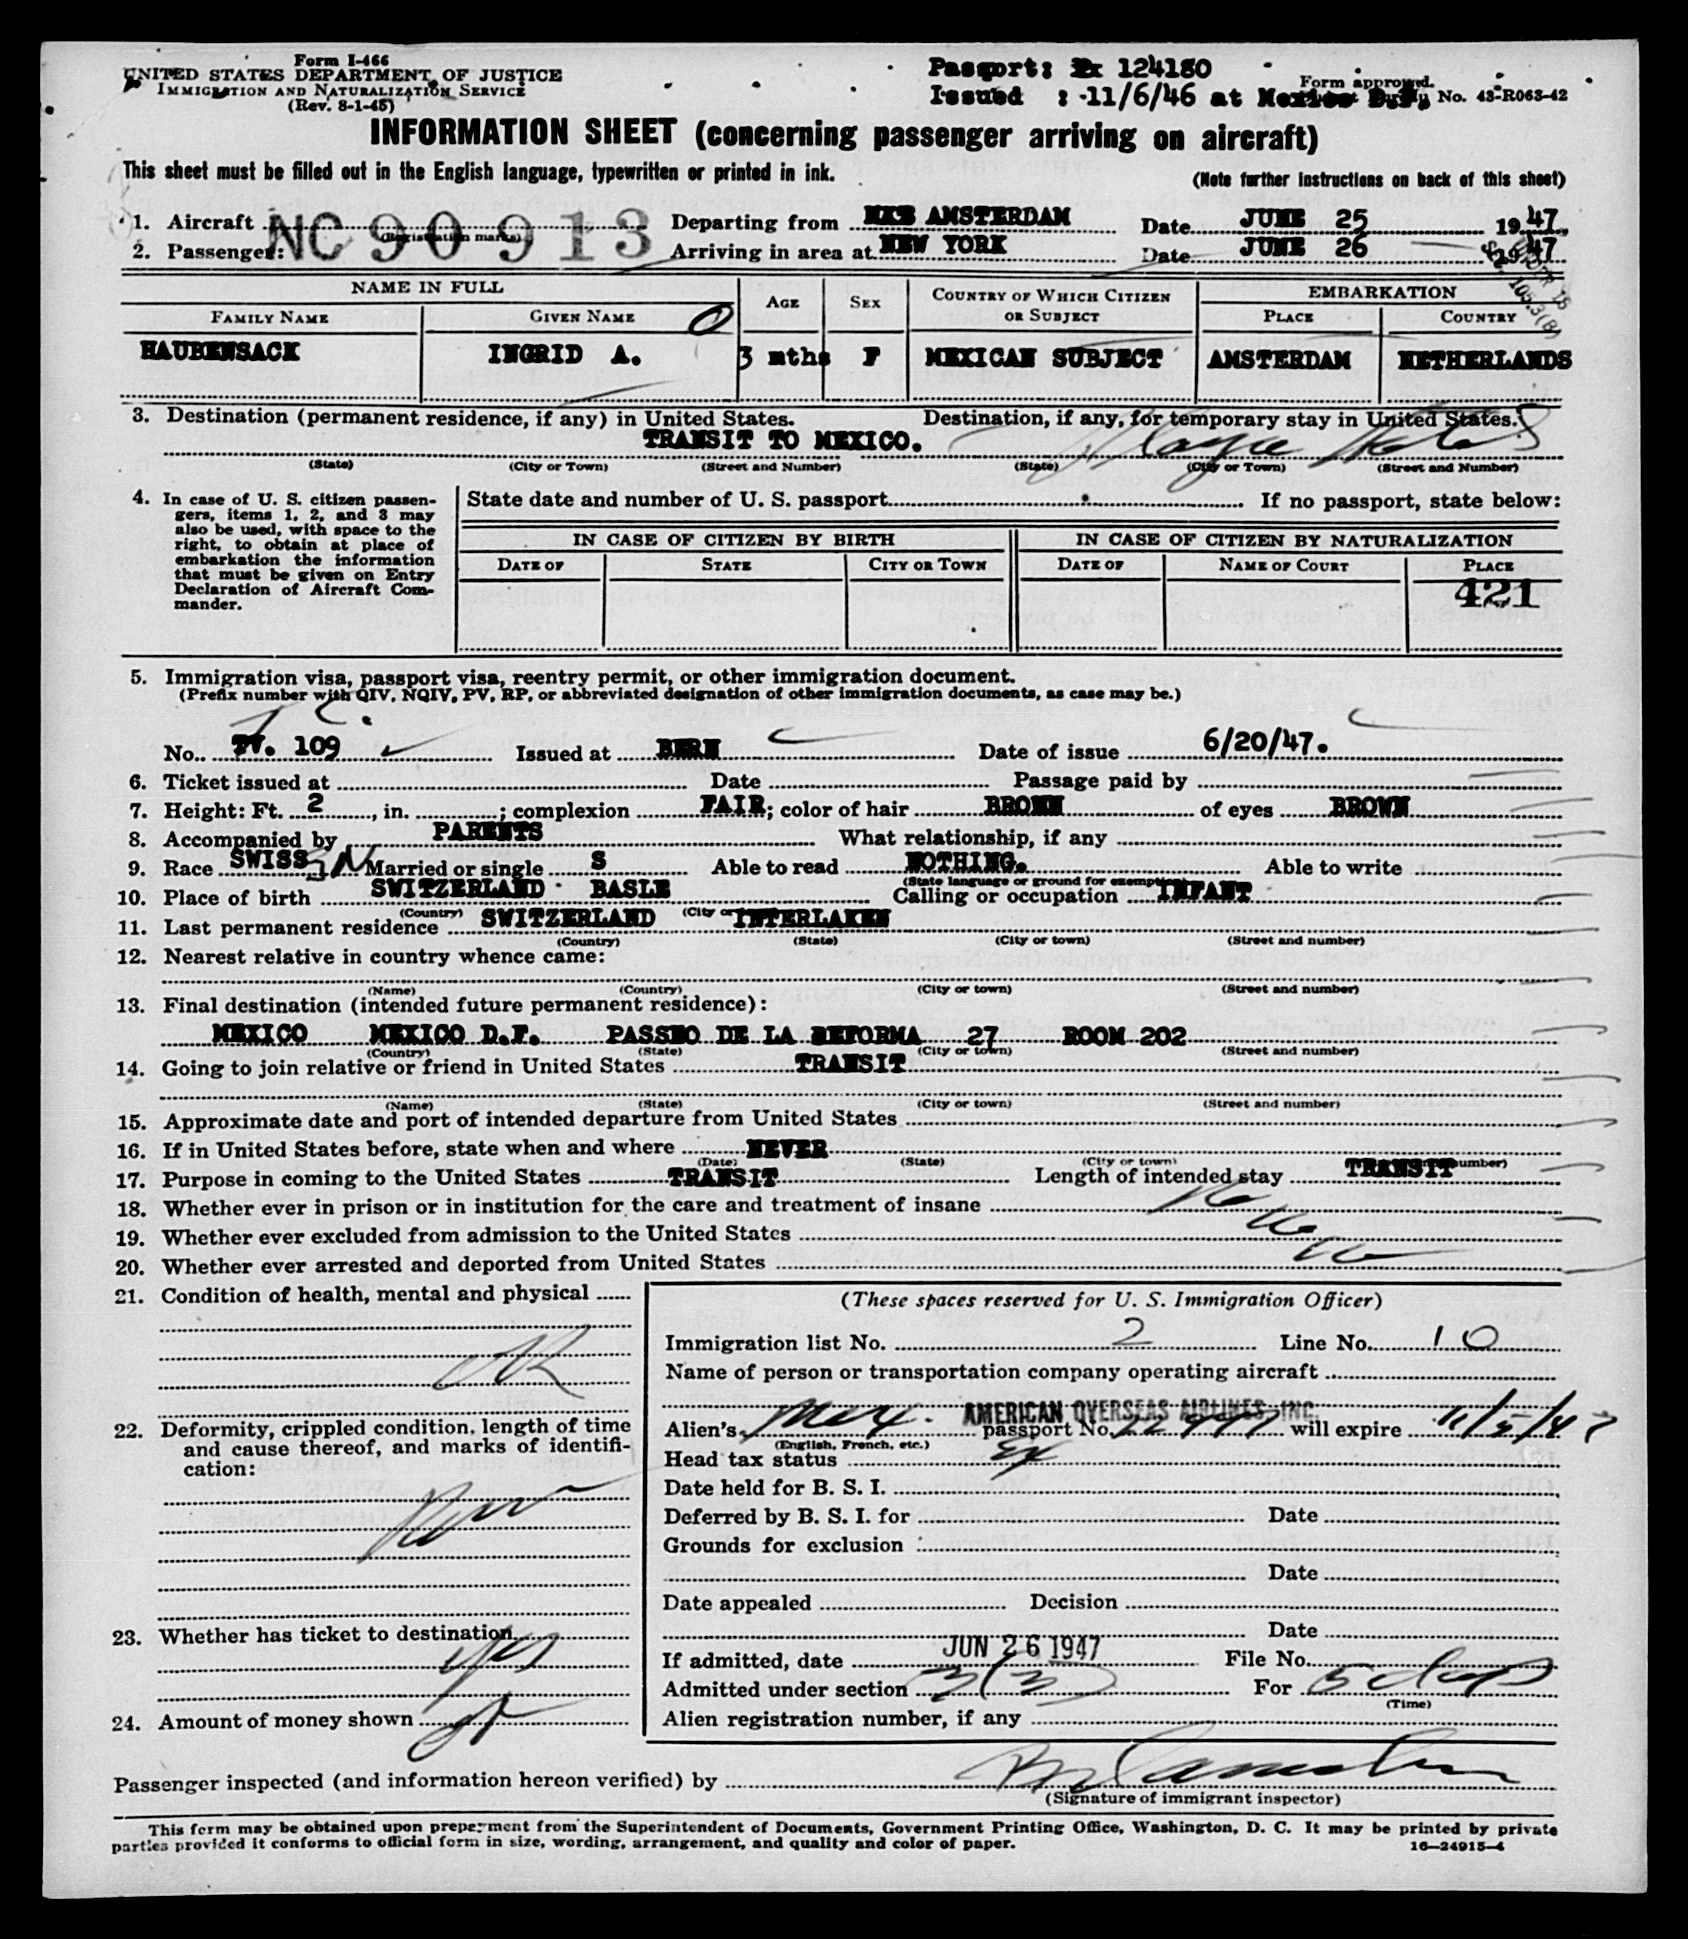 Form I-466
UNITED STATES DEPARTMENT OF JUSTICE
IMMIGRATION AND NATURALIZATION SERVICE
(Rev. 8-1-45)
Passport: 124180
Issued : 11/6/46 at Mexico D.F.
Form approved.
No. 43-R063-42
INFORMATION SHEET (concerning passenger arriving on aircraft)
This sheet must be filled out in the English language, typewritten or printed in ink.
(Note further instructions on back of this sheet)
1. Aircraft NC 90913 Departing from AMSTERDAM Date JUNE 25 1947
(Registration marks)
2. Passenger: Arriving in area at NEW YORK Date JUNE 26 1947
NAME IN FULL AGE SEX COUNTRY OF WHICH CITIZEN OR SUBJECT EMBARKATION
FAMILY NAME GIVEN NAME PLACE COUNTRY
HAUBENSACK INGRID A. 3 mths F MEXICAN SUBJECT AMSTERDAM NETHERLANDS
3. Destination (permanent residence, if any) in United States. Destination, if any, for temporary stay in United States.
TRANSIT TO MEXICO.
(State) (City or Town) (Street and Number) (State) (City or Town) (Street and Number)
4. In case of U. S. citizen passengers, items 1, 2, and 3 may also be used, with space to the right, to obtain at place of embarkation the information that must be given on Entry Declaration of Aircraft Commander.
State date and number of U. S. passport If no passport, state below:
IN CASE OF CITIZEN BY BIRTH IN CASE OF CITIZEN BY NATURALIZATION
DATE OF STATE CITY OR TOWN DATE OF NAME OF COURT PLACE
421
5. Immigration visa, passport visa, reentry permit, or other immigration document.
(Prefix number with QIV, NQIV, PV, RP, or abbreviated designation of other immigration documents, as case may be.)
No. 109 Issued at BERN Date of issue 6/20/47.
6. Ticket issued at Date Passage paid by
7. Height: Ft. 2, in. ; complexion FAIR; color of hair BROWN of eyes BROWN
8. Accompanied by PARENTS What relationship, if any
9. Race SWISS Married or single S Able to read NOTHING. Able to write
(State language or ground for exemption)
10. Place of birth SWITZERLAND BASLE Calling or occupation INFANT
(Country) (City or
11. Last permanent residence SWITZERLAND INTERLAKEN
(Country) (State) (City or town) (Street and number)
12. Nearest relative in country whence came:
(Name) (Country) (City or town) (Street and number)
13. Final destination (intended future permanent residence):
MEXICO MEXICO D.F. PASSEO DE LA REFORMA 27 ROOM 202
(Country) (State) (City or town) (Street and number)
14. Going to join relative or friend in United States TRANSIT
(Name) (State) (City or town) (Street and number)
15. Approximate date and port of intended departure from United States
16. If in United States before, state when and where NEVER
(Date) (State) (City or town) number)
17. Purpose in coming to the United States TRANSIT Length of intended stay TRANSIT
18. Whether ever in prison or in institution for the care and treatment of insane No
19. Whether ever excluded from admission to the United States No
20. Whether ever arrested and deported from United States No
21. Condition of health, mental and physical
OK
22. Deformity, crippled condition, length of time and cause thereof, and marks of identification:
None
23. Whether has ticket to destination
yes
24. Amount of money shown
(These spaces reserved for U. S. Immigration Officer)
Immigration list No. 2 Line No. 10
Name of person or transportation company operating aircraft
AMERICAN OVERSEAS AIRLINES, INC.
Alien's Mex. passport No. will expire 11/5/47
(English, French, etc.)
Head tax status Ex
Date held for B. S. I.
Deferred by B. S. I. for Date
Grounds for exclusion
Date
Date appealed Decision
Date
If admitted, date JUN 26 1947 File No.
Admitted under section 3(3) For 5 days
(Time)
Alien registration number, if any
Passenger inspected (and information hereon verified) by
(Signature of immigrant inspector)
This form may be obtained upon prepayment from the Superintendent of Documents, Government Printing Office, Washington, D. C. It may be printed by private
parties provided it conforms to official form in size, wording, arrangement, and quality and color of paper.
16—24915-4